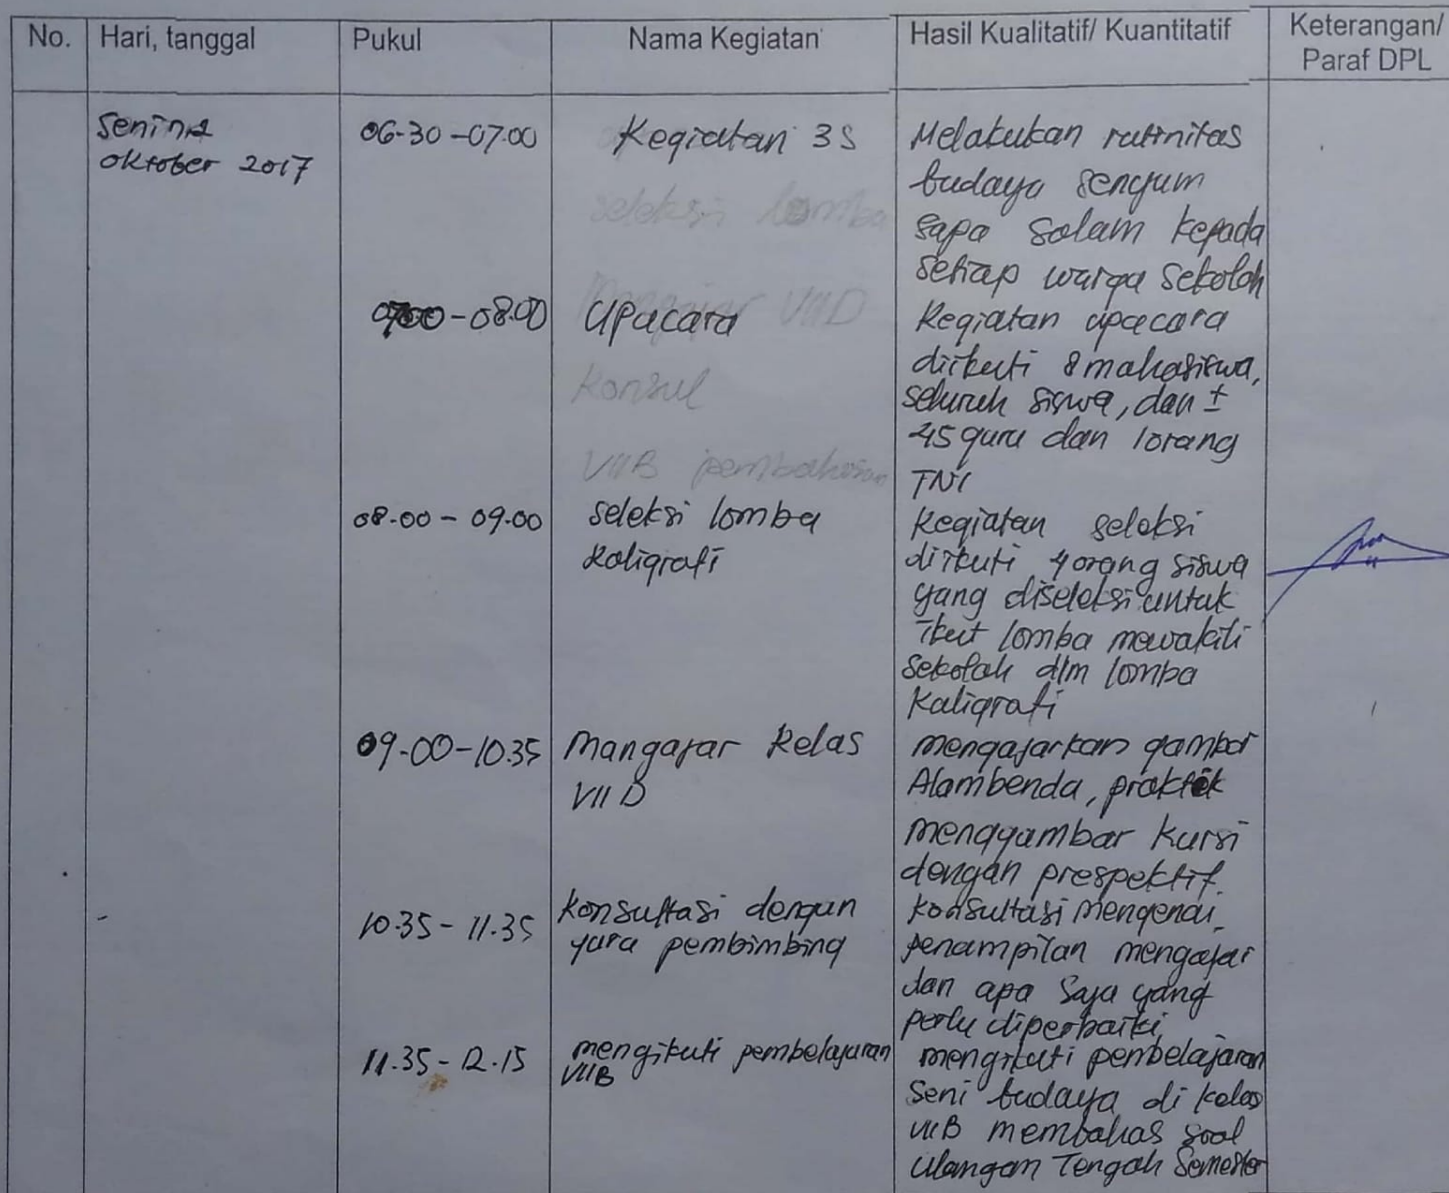 No. Hari, tanggal Pukul Nama Kegiatan Hasil Kualitatif/ Kuantitatif Keterangan/
Paraf DPL
Senin 2
oktober 2017
06-30 -07.00
Kegiatan 3S
Melakukan rutinitas
budaya senyum
sapa salam kepada
setiap warga sekolah
0700-08.00
upacara
kegiatan upacara
diikuti 8 mahasiswa,
seluruh siswa, dan ±
45 guru dan 1 orang
TNI
08.00 - 09.00
seleksi lomba
kaligrafi
kegiatan seleksi
diikuti 4 orang siswa
yang diseleksi untuk
ikut lomba mewakili
sekolah dlm lomba
kaligrafi
09-00-10.35
Mangajar kelas
VII D
mengajarkan gambar
Alambenda, praktek
menggambar kursi
dengan prespektif.
10.35 - 11.35
konsultasi dengan
guru pembimbing
konsultasi mengenai
penampilan mengajar
dan apa saja yang
perlu diperbaiki
11.35 - 12.15
mengikuti pembelajaran
VIIB
mengikuti pembelajaran
seni budaya di kelas
VIIB membahas soal
ulangan Tengah Semester
seleksi lomba
Mengajar VIID
Konsul
VIIB pembahasan